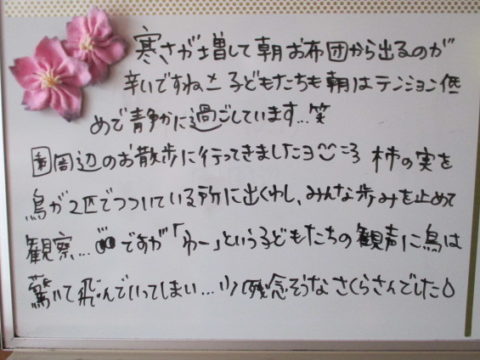 寒さが増して朝お布団から出るのが
辛いですね 子どもたちも朝はテンション低
めで静かに過ごしています…笑
園周辺のお散歩に行ってきましたヨ 柿の実を
鳥が2匹でつついている所に出くわし、みんな歩みを止めて
観察… ですが「わー」という子どもたちの観声に鳥は
驚いて飛んでいってしまい… 残念そうな さくらさんでした